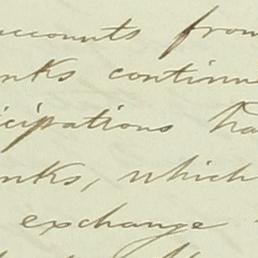 accounts from
nks continu
icipations ha
nks, which
exchange